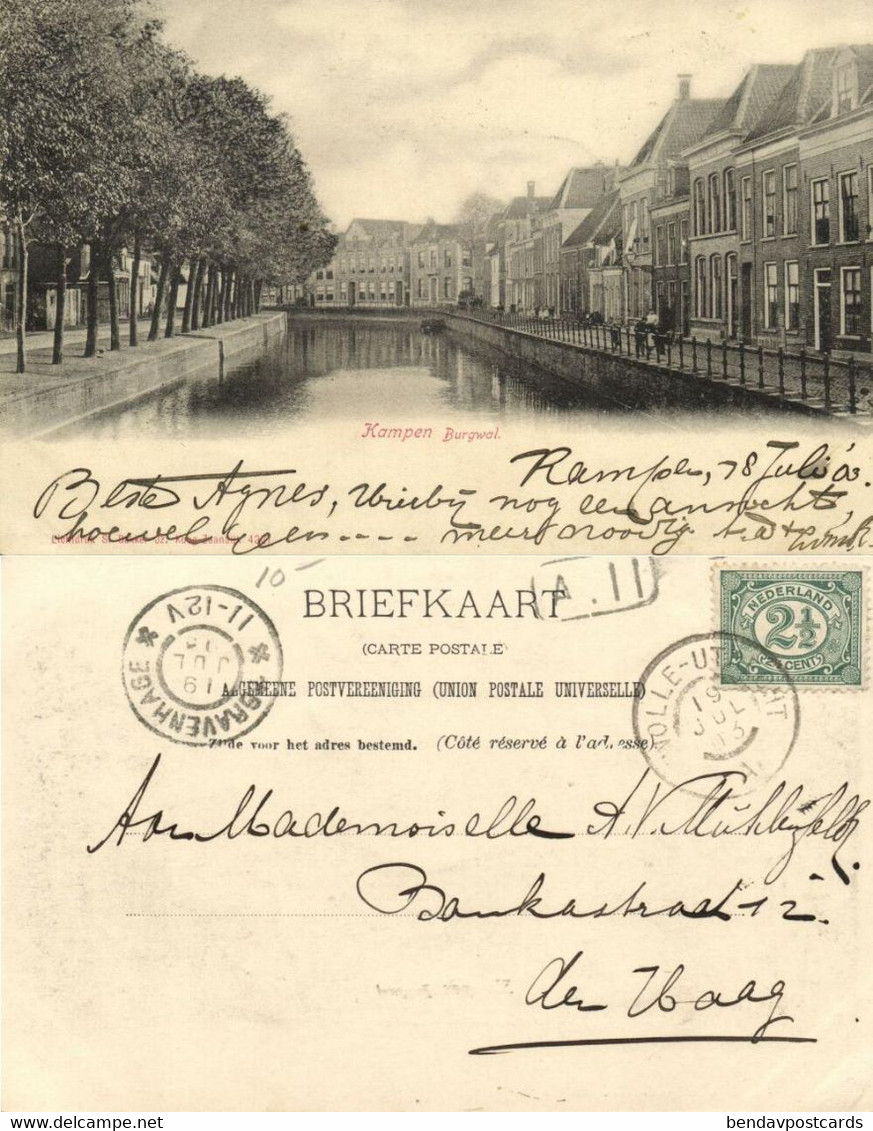 Kampen Burgwal.
Kampen, 18 Juli '03.
Beste Agnes, Hierbij nog een ansicht,
hoewel geen .... meer noodig
10-
A. 11
BRIEFKAART
(CARTE POSTALE)
ALGEMEENE POSTVEREENIGING (UNION POSTALE UNIVERSELLE)
Zijde voor het adres bestemd. (Côté réservé à l'adresse)
'S GRAVENHAGE
11-12V
19 JUL
NEDERLAND
2½
(2½ CENT)
ZWOLLE-UTRECHT
19 JUL 03
Aan Mademoiselle A.V. Mühlenfeldt.
Bankastraat 12
den Haag
delcampe.net
bendavpostcards